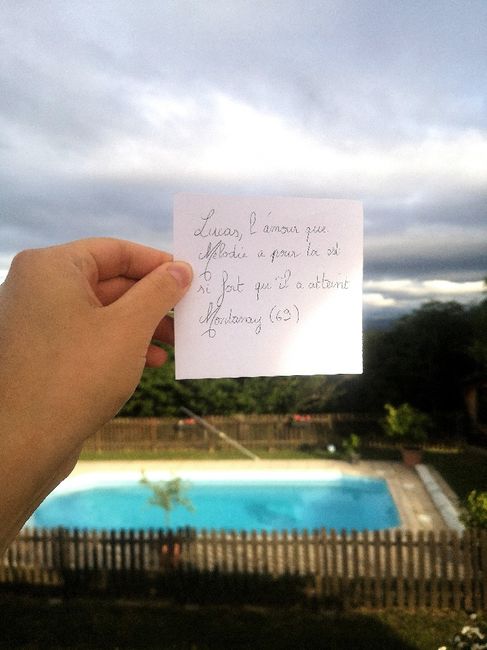 Lucas, l'amour que
Mélodie a pour toi est
si fort qu'il a atteint
Montanay (69)